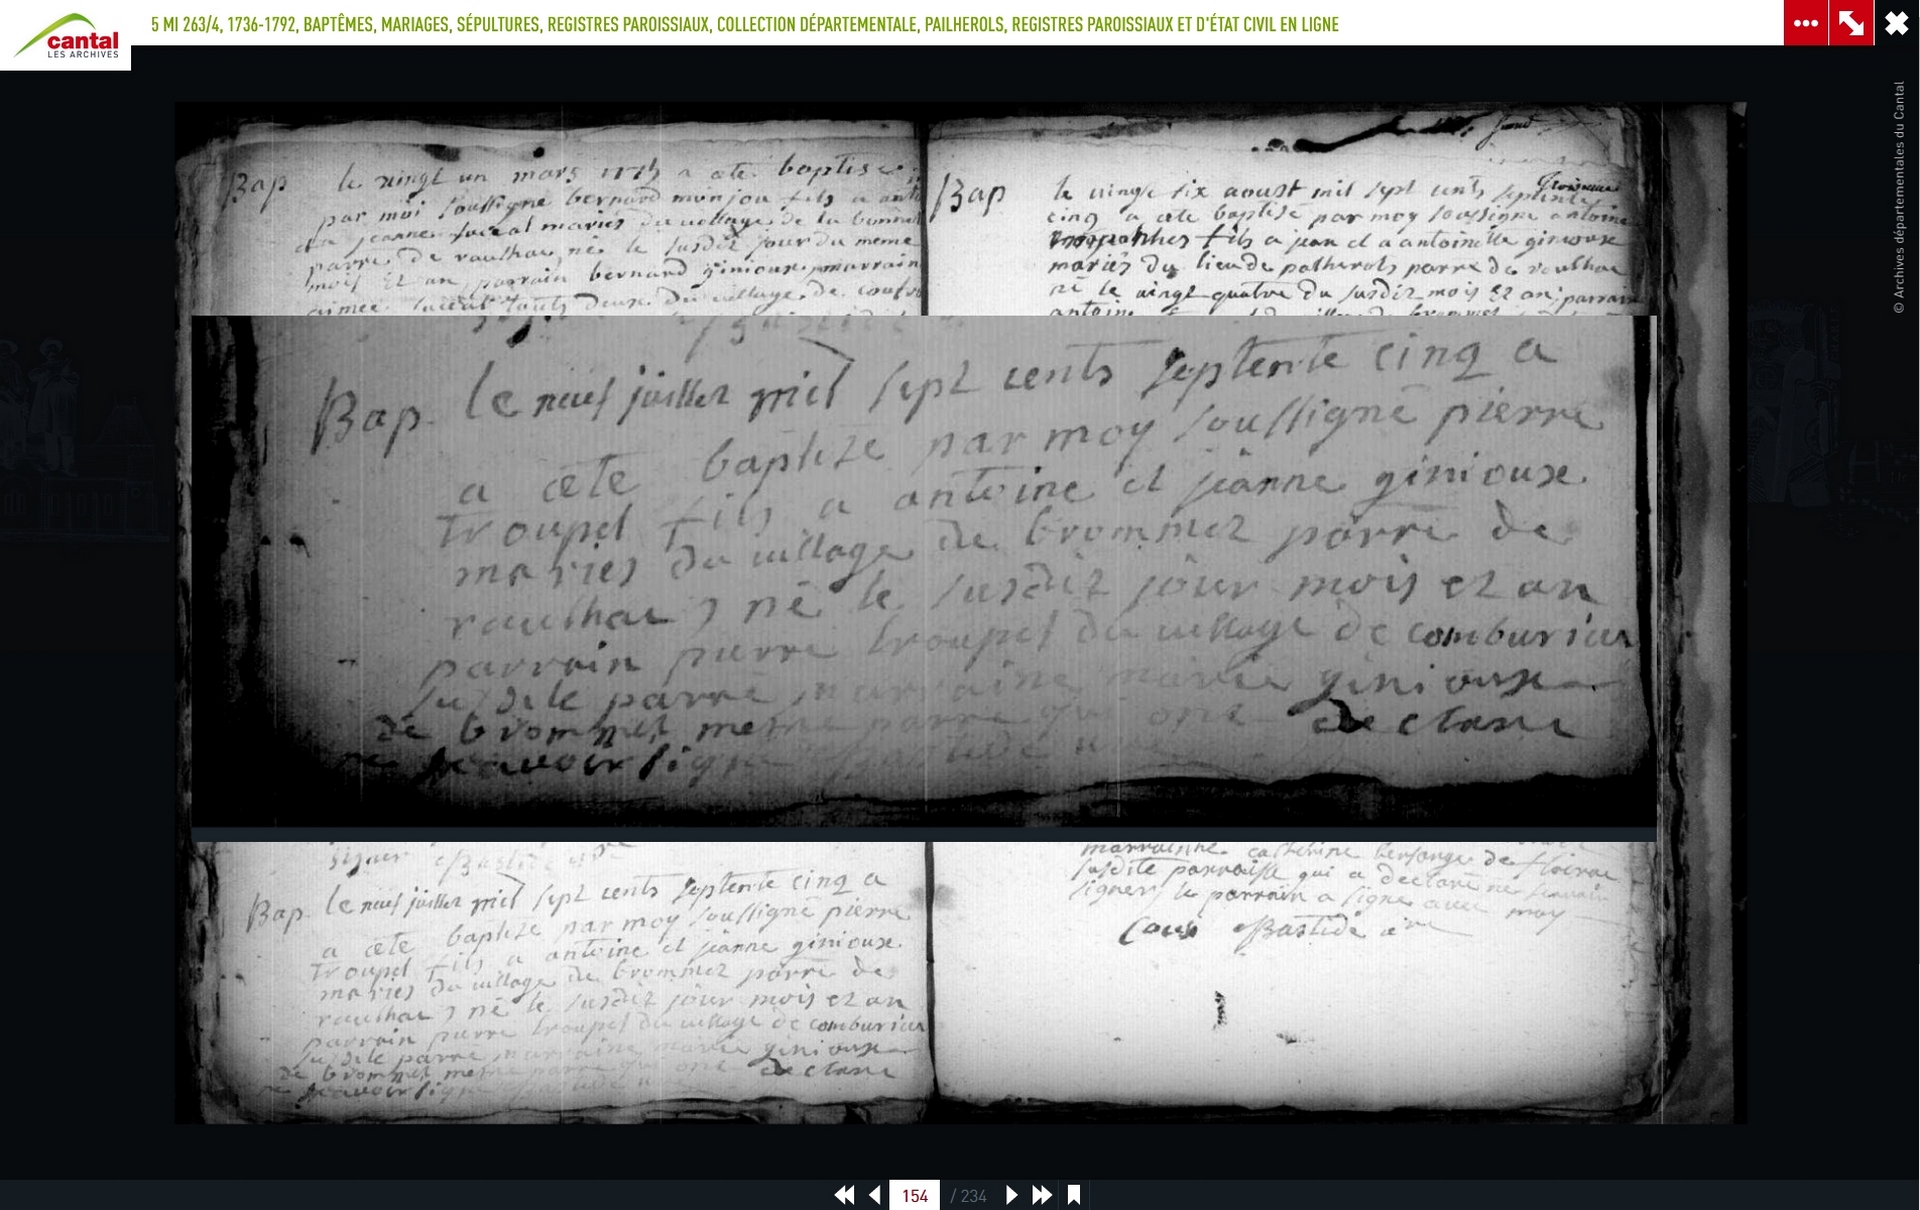 cantal
LES ARCHIVES
5 MI 263/4, 1736-1792, BAPTÊMES, MARIAGES, SÉPULTURES, REGISTRES PAROISSIAUX, COLLECTION DÉPARTEMENTALE, PAILHEROLS, REGISTRES PAROISSIAUX ET D'ÉTAT CIVIL EN LIGNE
© Archives départementales du Cantal
Bap le vingt un mars 1775 a ete baptise
par moi soussigne bernard monjou fils a
jeanne mariés du village de la
parre de raulhac né le susdit jour du meme
mois Et an parrain bernard ginioux marrain
aimee touts deux du village de
Bap le vingt six aoust mil sept cents septente
cinq a ete baptisé par moy soussigne antoine
fils a jean et a antoinette ginioux
mariés du lieu de palherols parre de raulhac
né le vingt quatre du susdit mois Et an parrain
antoine
Bap. le neuf juillet mil sept cents septente cinq a
a ete baptize par moy soussigné pierre
troupel fils a antoine et jeanne ginioux
mariés du village de brommez parre de
raulhac né le susdit jour mois et an
parrain pierre troupel du village de comburieu
susdite parre marraine marie ginioux
de brommet meme parre qui ont declaré
ne scavoir signer Bastide
signer Bastide
Bap. le neuf juillet mil sept cents septente cinq a
a ete baptize par moy soussigné pierre
troupel fils a antoine et jeanne ginioux
mariés du village de brommez parre de
raulhac né le susdit jour mois et an
parrain pierre troupel du village de comburieu
susdite parre marraine marie ginioux
de brommet meme parre qui ont declaré
ne scavoir signer Bastide
marrainne catherine de
susdite parroisse qui a declaré ne
signer le parrain a signe avec moy
Bastide
154 / 234